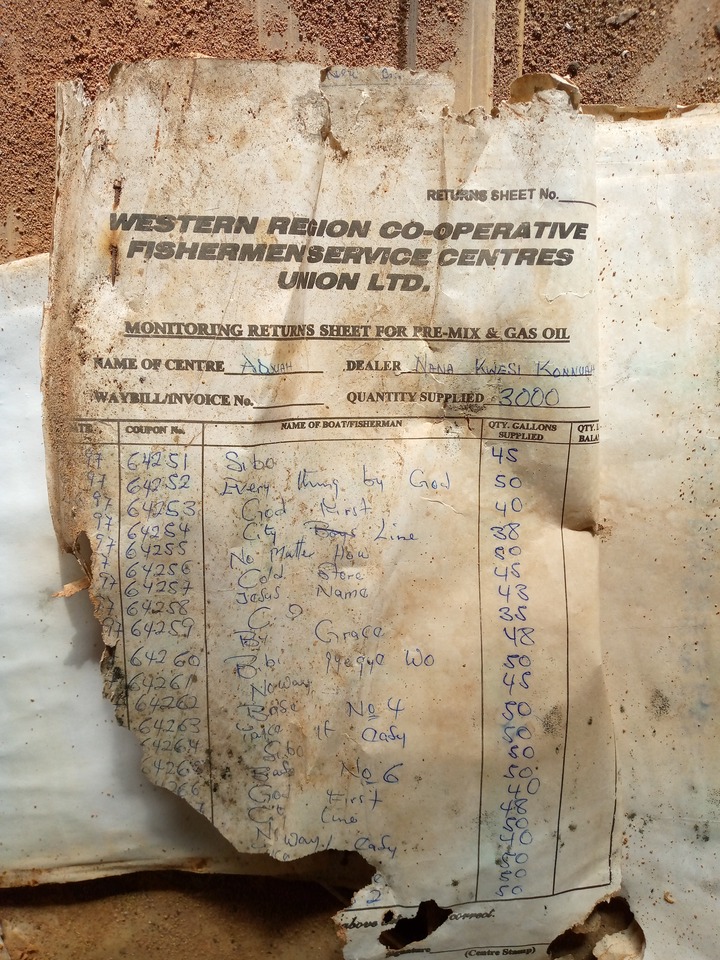 RETURNS SHEET No.
WESTERN REGION CO-OPERATIVE
FISHERMEN SERVICE CENTRES
UNION LTD.
MONITORING RETURNS SHEET FOR PRE-MIX & GAS OIL
NAME OF CENTRE DEALER NANA KWESI KONNUAH
WAYBILL/INVOICE No. QUANTITY SUPPLIED 3000
COUPON No. NAME OF BOAT/FISHERMAN QTY. GALLONS SUPPLIED QTY.
97 64251 Sibo 45
97 64252 Every thing by God 50
97 64253 God First 40
97 64254 City Line 38
97 64255 No Matter How 50
97 64256 Cold Store 45
97 64257 Jesus Name 48
97 64258 35
97 64259 By Grace 48
64260 Bibi Gyegye Wo 50
64261 No Way 45
64262 Base No 4 50
64263 It Easy 50
64264 Sibo 50
No 6 50
God First 40
Line 48
No Way 50
Easy 40
50
50
2 50
above correct.
Signature (Centre Stamp)